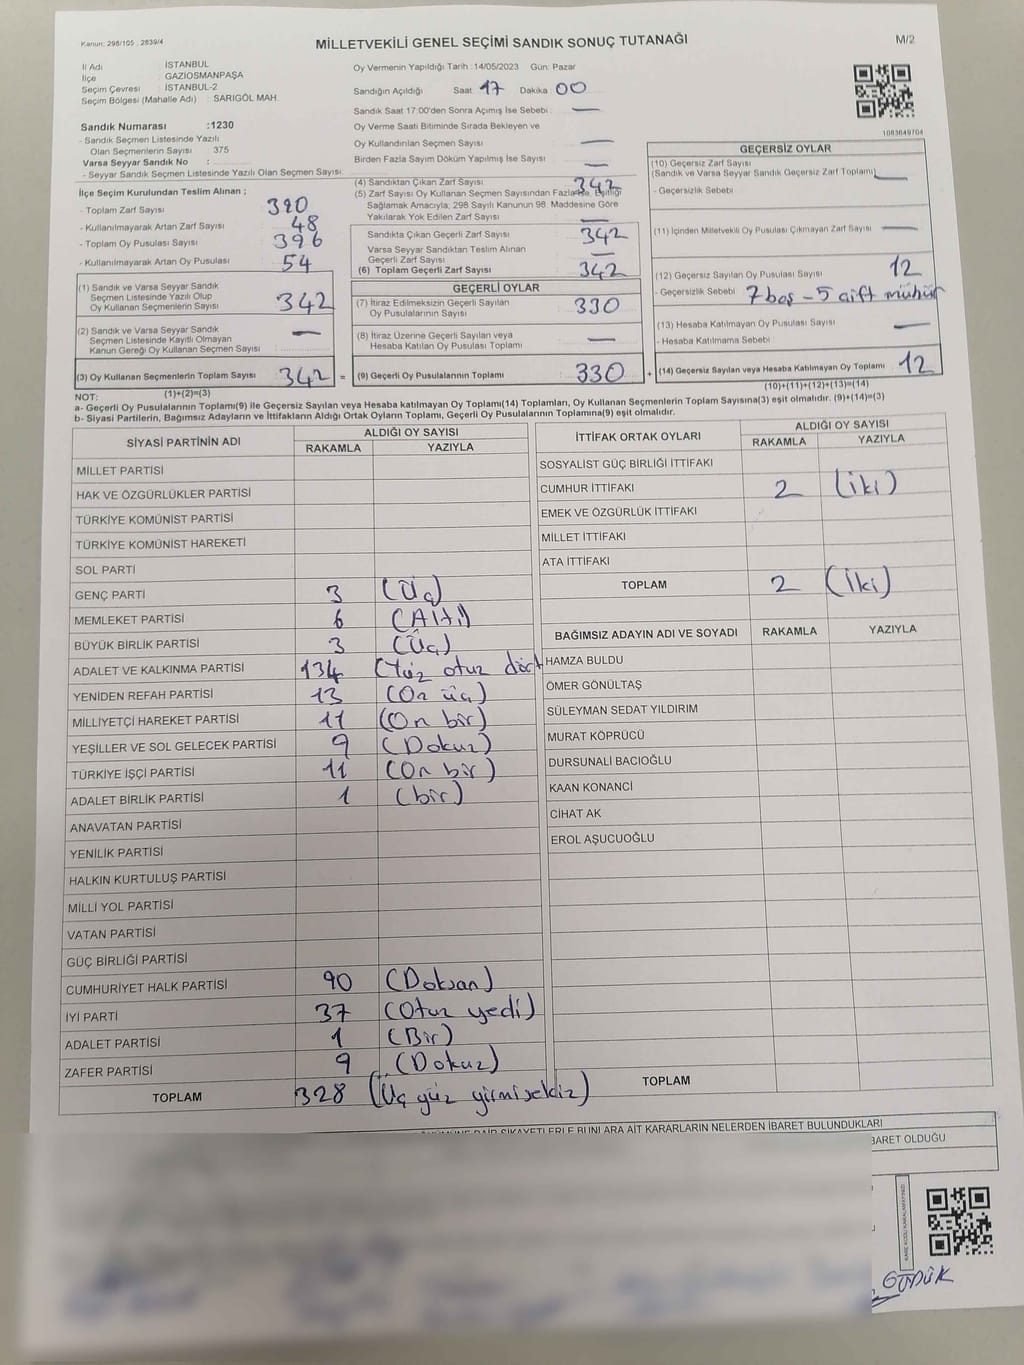 Kanun: 298/105 , 2839/4
MİLLETVEKİLİ GENEL SEÇİMİ SANDIK SONUÇ TUTANAĞI
M/2
İl Adı İSTANBUL
İlçe GAZİOSMANPAŞA
Seçim Çevresi : İSTANBUL-2
Seçim Bölgesi (Mahalle Adı) : SARIGÖL MAH.
Sandık Numarası :1230
- Sandık Seçmen Listesinde Yazılı
Olan Seçmenlerin Sayısı 375
Varsa Seyyar Sandık No :
- Seyyar Sandık Seçmen Listesinde Yazılı Olan Seçmen Sayısı:
İlçe Seçim Kurulundan Teslim Alınan ;
- Toplam Zarf Sayısı 390
- Kullanılmayarak Artan Zarf Sayısı 48
- Toplam Oy Pusulası Sayısı 396
- Kullanılmayarak Artan Oy Pusulası 54
(1) Sandık ve Varsa Seyyar Sandık
Seçmen Listesinde Yazılı Olup
Oy Kullanan Seçmenlerin Sayısı 342
(2) Sandık ve Varsa Seyyar Sandık
Seçmen Listesinde Kayıtlı Olmayan
Kanun Gereği Oy Kullanan Seçmen Sayısı : —
(3) Oy Kullanan Seçmenlerin Toplam Sayısı 342 =
(1)+(2)=(3)
Oy Vermenin Yapıldığı Tarih :14/05/2023 Gün: Pazar
Sandığın Açıldığı Saat 17 Dakika 00
Sandık Saat 17:00'den Sonra Açımış İse Sebebi : —
Oy Verme Saati Bitiminde Sırada Bekleyen ve
Oy Kullandırılan Seçmen Sayısı —
Birden Fazla Sayım Döküm Yapılmış İse Sayısı —
(4) Sandıktan Çıkan Zarf Sayısı 342
(5) Zarf Sayısı Oy Kullanan Seçmen Sayısından Fazla İse, Eşitliği
Sağlamak Amacıyla, 298 Sayılı Kanunun 98. Maddesine Göre
Yakılarak Yok Edilen Zarf Sayısı —
Sandıkta Çıkan Geçerli Zarf Sayısı 342
Varsa Seyyar Sandıktan Teslim Alınan
Geçerli Zarf Sayısı —
(6) Toplam Geçerli Zarf Sayısı 342
GEÇERLİ OYLAR
(7) İtiraz Edilmeksizin Geçerli Sayılan
Oy Pusulalarının Sayısı 330
(8) İtiraz Üzerine Geçerli Sayılan veya
Hesaba Katılan Oy Pusulası Toplamı —
(9) Geçerli Oy Pusulalarının Toplamı 330 +
1083649704
GEÇERSİZ OYLAR
(10) Geçersiz Zarf Sayısı
(Sandık ve Varsa Seyyar Sandık Geçersiz Zarf Toplamı) —
- Geçersizlik Sebebi
(11) İçinden Milletvekili Oy Pusulası Çıkmayan Zarf Sayısı —
(12) Geçersiz Sayılan Oy Pusulası Sayısı 12
- Geçersizlik Sebebi 7 boş - 5 çift mühür
(13) Hesaba Katılmayan Oy Pusulası Sayısı —
- Hesaba Katılmama Sebebi
(14) Geçersiz Sayılan veya Hesaba Katılmayan Oy Toplamı 12
(10)+(11)+(12)+(13)=(14)
NOT:
a- Geçerli Oy Pusulalarının Toplamı(9) ile Geçersiz Sayılan veya Hesaba katılmayan Oy Toplamı(14) Toplamları, Oy Kullanan Seçmenlerin Toplam Sayısına(3) eşit olmalıdır. (9)+(14)=(3)
b- Siyasi Partilerin, Bağımsız Adayların ve İttifakların Aldığı Ortak Oyların Toplamı, Geçerli Oy Pusulalarının Toplamına(9) eşit olmalıdır.
SİYASİ PARTİNİN ADI ALDIĞI OY SAYISI
RAKAMLA YAZIYLA
MİLLET PARTİSİ
HAK VE ÖZGÜRLÜKLER PARTİSİ
TÜRKİYE KOMÜNİST PARTİSİ
TÜRKİYE KOMÜNİST HAREKETİ
SOL PARTİ
GENÇ PARTİ 3 (Üç)
MEMLEKET PARTİSİ 6 (Altı)
BÜYÜK BİRLİK PARTİSİ 3 (Üç)
ADALET VE KALKINMA PARTİSİ 134 (Yüz otuz dört
YENİDEN REFAH PARTİSİ 13 (On üç)
MİLLİYETÇİ HAREKET PARTİSİ 11 (On bir)
YEŞİLLER VE SOL GELECEK PARTİSİ 9 (Dokuz)
TÜRKİYE İŞÇİ PARTİSİ 11 (On bir)
ADALET BİRLİK PARTİSİ 1 (bir)
ANAVATAN PARTİSİ
YENİLİK PARTİSİ
HALKIN KURTULUŞ PARTİSİ
MİLLİ YOL PARTİSİ
VATAN PARTİSİ
GÜÇ BİRLİĞİ PARTİSİ
CUMHURİYET HALK PARTİSİ 90 (Doksan)
İYİ PARTİ 37 (Otuz yedi)
ADALET PARTİSİ 1 (Bir)
ZAFER PARTİSİ 9 (Dokuz)
TOPLAM 328 (Üç yüz yirmi sekiz)
İTTİFAK ORTAK OYLARI ALDIĞI OY SAYISI
RAKAMLA YAZIYLA
SOSYALİST GÜÇ BİRLİĞİ İTTİFAKI
CUMHUR İTTİFAKI 2 (iki)
EMEK VE ÖZGÜRLÜK İTTİFAKI
MİLLET İTTİFAKI
ATA İTTİFAKI
TOPLAM 2 (İki)
BAĞIMSIZ ADAYIN ADI VE SOYADI RAKAMLA YAZIYLA
HAMZA BULDU
ÖMER GÖNÜLTAŞ
SÜLEYMAN SEDAT YILDIRIM
MURAT KÖPRÜCÜ
DURSUNALİ BACIOĞLU
KAAN KONANCİ
CİHAT AK
EROL AŞUCUOĞLU
TOPLAM
DAİR ŞİKAYETLERLE BUNLARA AİT KARARLARIN NELERDEN İBARET BULUNDUKLARI
BARET OLDUĞU